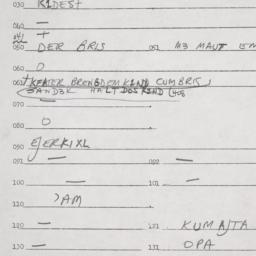 030 KIDEST
040 —
041 +
050 DER BRIS 051 M3 MAUT EM
060 O
+KEATER BRENGDEM KIND CUM BRIS
060 SANDEK HALT DOS KIND
070 —
080 O
090 EJERKIXL
091 — 092 —
100 — 101 —
110 JAM
120 — 121 KUMAJTA
130 — 131 OPA